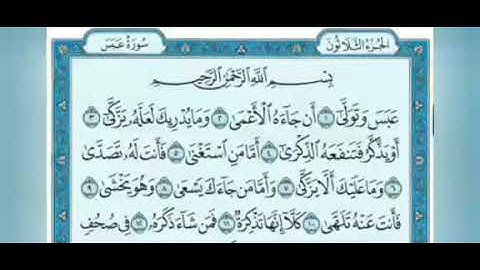 الجزء الثلاثون
سورة عبس
بِسْمِ اللَّهِ الرَّحْمَٰنِ الرَّحِيمِ
عَبَسَ وَتَوَلَّىٰ ١ أَن جَاءَهُ الْأَعْمَىٰ ٢ وَمَا يُدْرِيكَ لَعَلَّهُ يَزَّكَّىٰ ٣
أَوْ يَذَّكَّرُ فَتَنفَعَهُ الذِّكْرَىٰ ٤ أَمَّا مَنِ اسْتَغْنَىٰ ٥ فَأَنتَ لَهُ تَصَدَّىٰ
٦ وَمَا عَلَيْكَ أَلَّا يَزَّكَّىٰ ٧ وَأَمَّا مَن جَاءَكَ يَسْعَىٰ ٨ وَهُوَ يَخْشَىٰ ٩
فَأَنتَ عَنْهُ تَلَهَّىٰ ١٠ كَلَّا إِنَّهَا تَذْكِرَةٌ ١١ فَمَن شَاءَ ذَكَرَهُ ١٢ فِي صُحُفٍ